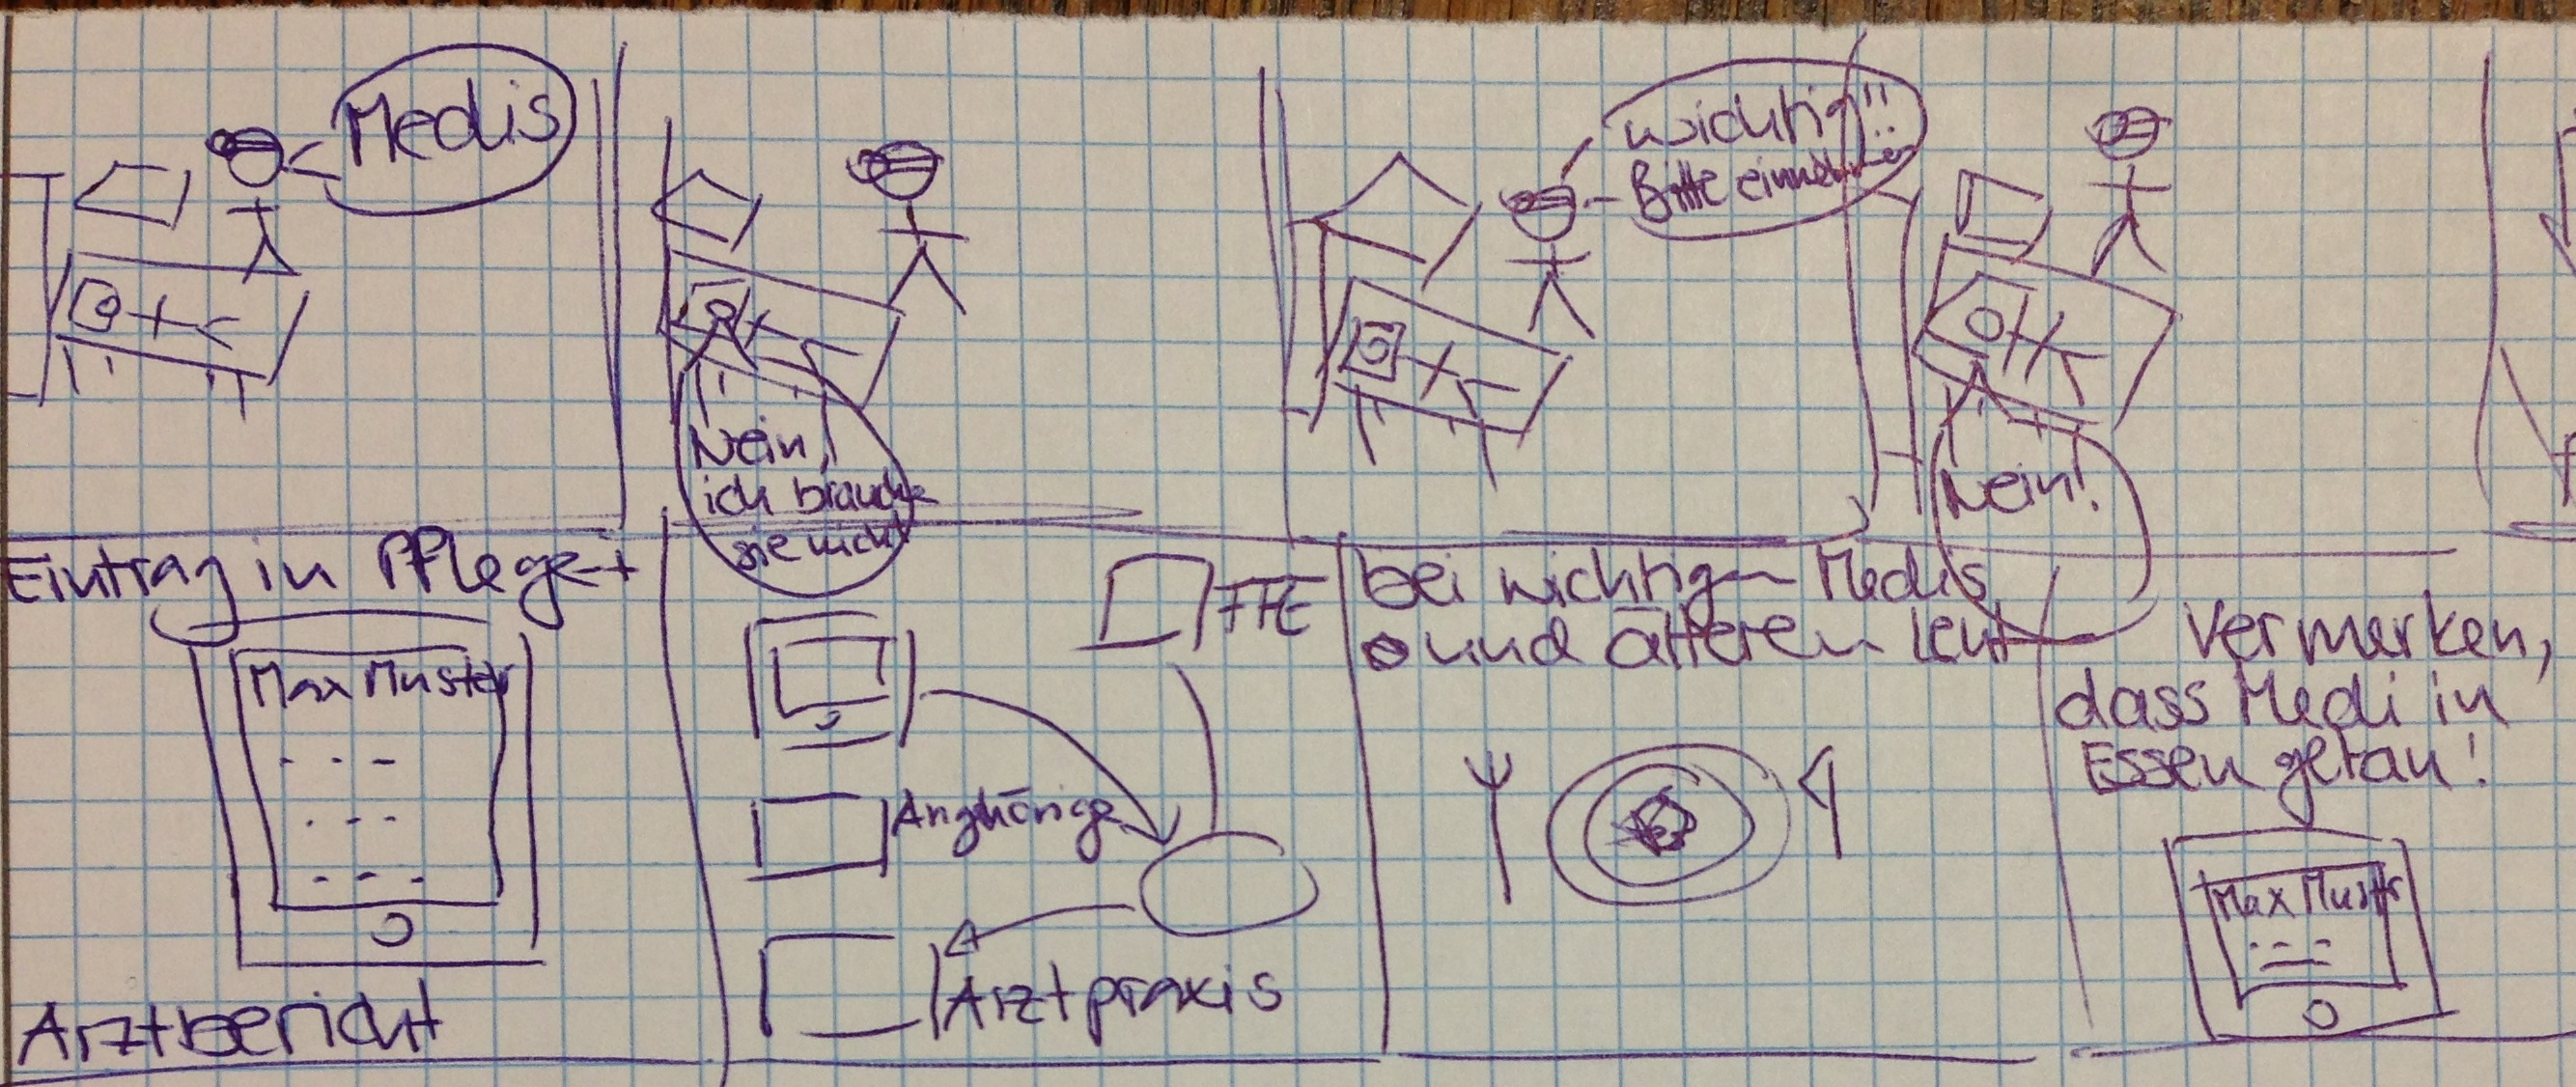 Medis
Nein,
ich brauche
sie nicht
wichtig!!
Bitte einnehmen
Nein!
Eintrag in Pflege-
Max Muster
Arztbericht
Anghörige
Arztpraxis
bei wichtigen Medis
und älteren Leut
vermerken,
dass Medi in
Essen getan!
Max Muster